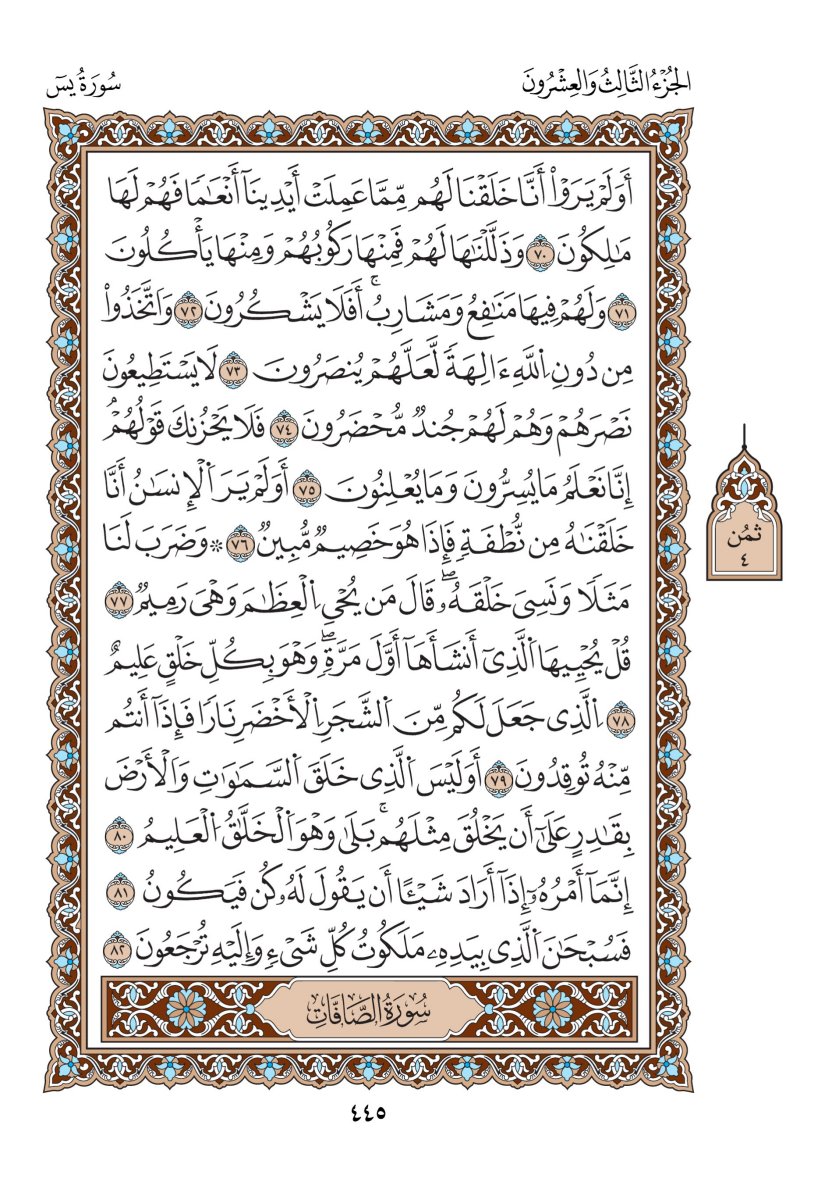 الجُزْءُ الثَّالِثُ وَالعِشْرُونَ
سُورَةُ يسٓ
أَوَلَمْ يَرَوْاْ أَنَّا خَلَقْنَا لَهُم مِّمَّا عَمِلَتْ أَيْدِينَآ أَنْعَٰمٗا فَهُمْ لَهَا
مَٰلِكُونَ ٧٠ وَذَلَّلْنَٰهَا لَهُمْ فَمِنْهَا رَكُوبُهُمْ وَمِنْهَا يَأْكُلُونَ
٧١ وَلَهُمْ فِيهَا مَنَٰفِعُ وَمَشَارِبُۚ أَفَلَا يَشْكُرُونَ ٧٢ وَاَتَّخَذُواْ
مِن دُونِ اِ۬للَّهِ ءَالِهَةٗ لَّعَلَّهُمْ يُنصَرُونَ ٧٣ لَا يَسْتَطِيعُونَ
نَصْرَهُمْ وَهُمْ لَهُمْ جُندٞ مُّحْضَرُونَ ٧٤ فَلَا يَحْزُنكَ قَوْلُهُمُۥ
إِنَّا نَعْلَمُ مَا يُسِرُّونَ وَمَا يُعْلِنُونَ ٧٥ أَوَلَمْ يَرَ اَ۬لْإِنسَٰنُ أَنَّا
خَلَقْنَٰهُ مِن نُّطْفَةٖ فَإِذَا هُوَ خَصِيمٞ مُّبِينٞ ٧٦ ۞ وَضَرَبَ لَنَا
مَثَلٗا وَنَسِىَ خَلْقَهُۥۖ قَالَ مَن يُحْىِ اِ۬لْعِظَٰمَ وَهْىَ رَمِيمٞ ٧٧
قُلْ يُحْيِيهَا اَ۬لَّذِىٓ أَنشَأَهَآ أَوَّلَ مَرَّةٖۖ وَهْوَ بِكُلِّ خَلْقٍ عَلِيمٌ
٧٨ اِ۬لَّذِى جَعَلَ لَكُم مِّنَ اَ۬لشَّجَرِ اِ۬لْأَخْضَرِ نَارٗا فَإِذَآ أَنتُم
مِّنْهُ تُوقِدُونَ ٧٩ أَوَلَيْسَ اَ۬لَّذِى خَلَقَ اَ۬لسَّمَٰوَٰتِ وَالْأَرْضَ
بِقَٰدِرٍ عَلَىٰٓ أَن يَخْلُقَ مِثْلَهُمۚ بَلَىٰ وَهْوَ اَ۬لْخَلَّٰقُ اُ۬لْعَلِيمُ ٨٠
إِنَّمَآ أَمْرُهُۥٓ إِذَآ أَرَادَ شَيْـًٔا أَن يَقُولَ لَهُۥ كُن فَيَكُونُ ٨١
فَسُبْحَٰنَ اَ۬لَّذِى بِيَدِهِۦ مَلَكُوتُ كُلِّ شَىْءٖ وَإِلَيْهِ تُرْجَعُونَ ٨٢
سُورَةُ الصَّافَّاتِ
ثمُن
٤
٤٤٥